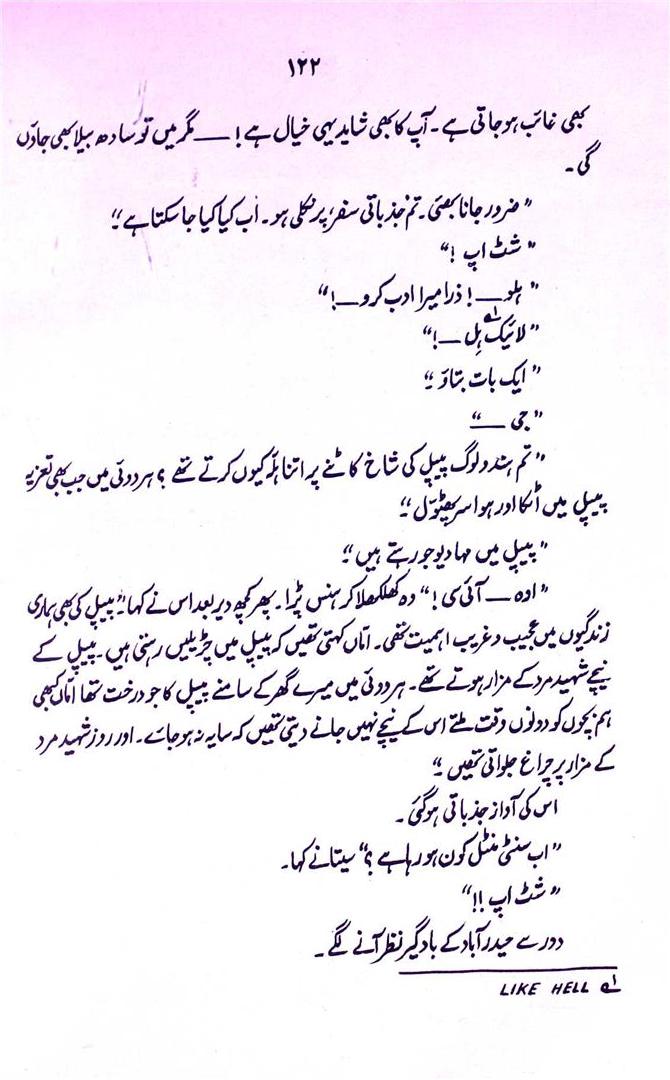 ۱۲۲
کبھی غائب ہو جاتی ہے۔ آپ کا بھی شاید یہی خیال ہے! — مگر میں تو سادھ بیلا بھی جاؤں
گی۔
"ضرور جانا بھئی۔ تم جذباتی سفر پر نکلی ہو۔ اب کیا کیا جا سکتا ہے"
"شٹ اپ!"
"ہلو —! ذرا میرا ادب کرو —!"
"لائیک ہِل۱ —!"
"ایک بات بتاؤ۔"
"جی —"
"تم ہندو لوگ پیپل کی شاخ کاٹنے پر اتنا ہلّہ کیوں کرتے تھے؟ ہردوئی میں جب بھی تعزیہ
پیپل میں اٹکا اور ہوا سر پھٹوّل۔"
"پیپل میں مہادیو جو رہتے ہیں۔"
"اوہ — آئی سی!" وہ کھلکھلا کر ہنس پڑا۔ پھر کچھ دیر بعد اس نے کہا۔ "پیپل کی بھی ہماری
زندگیوں میں عجیب و غریب اہمیت تھی۔ امّاں کہتی تھیں کہ پیپل میں چڑیلیں رہتی ہیں۔ پیپل کے
نیچے شہید مرد کے مزار ہوتے تھے۔ ہردوئی میں میرے گھر کے سامنے پیپل کا جو درخت تھا امّاں کبھی
ہم بچوں کو دونوں وقت ملتے اس کے نیچے نہیں جانے دیتی تھیں کہ سایہ نہ ہو جائے۔ اور روز شہید مرد
کے مزار پر چراغ جلواتی تھیں۔"
اس کی آواز جذباتی ہو گئی۔
"اب سنٹی منٹل کون ہو رہا ہے؟" سیتا نے کہا۔
"شٹ اپ!!"
دور سے حیدرآباد کے بادگیر نظر آنے لگے۔
۱ LIKE HELL